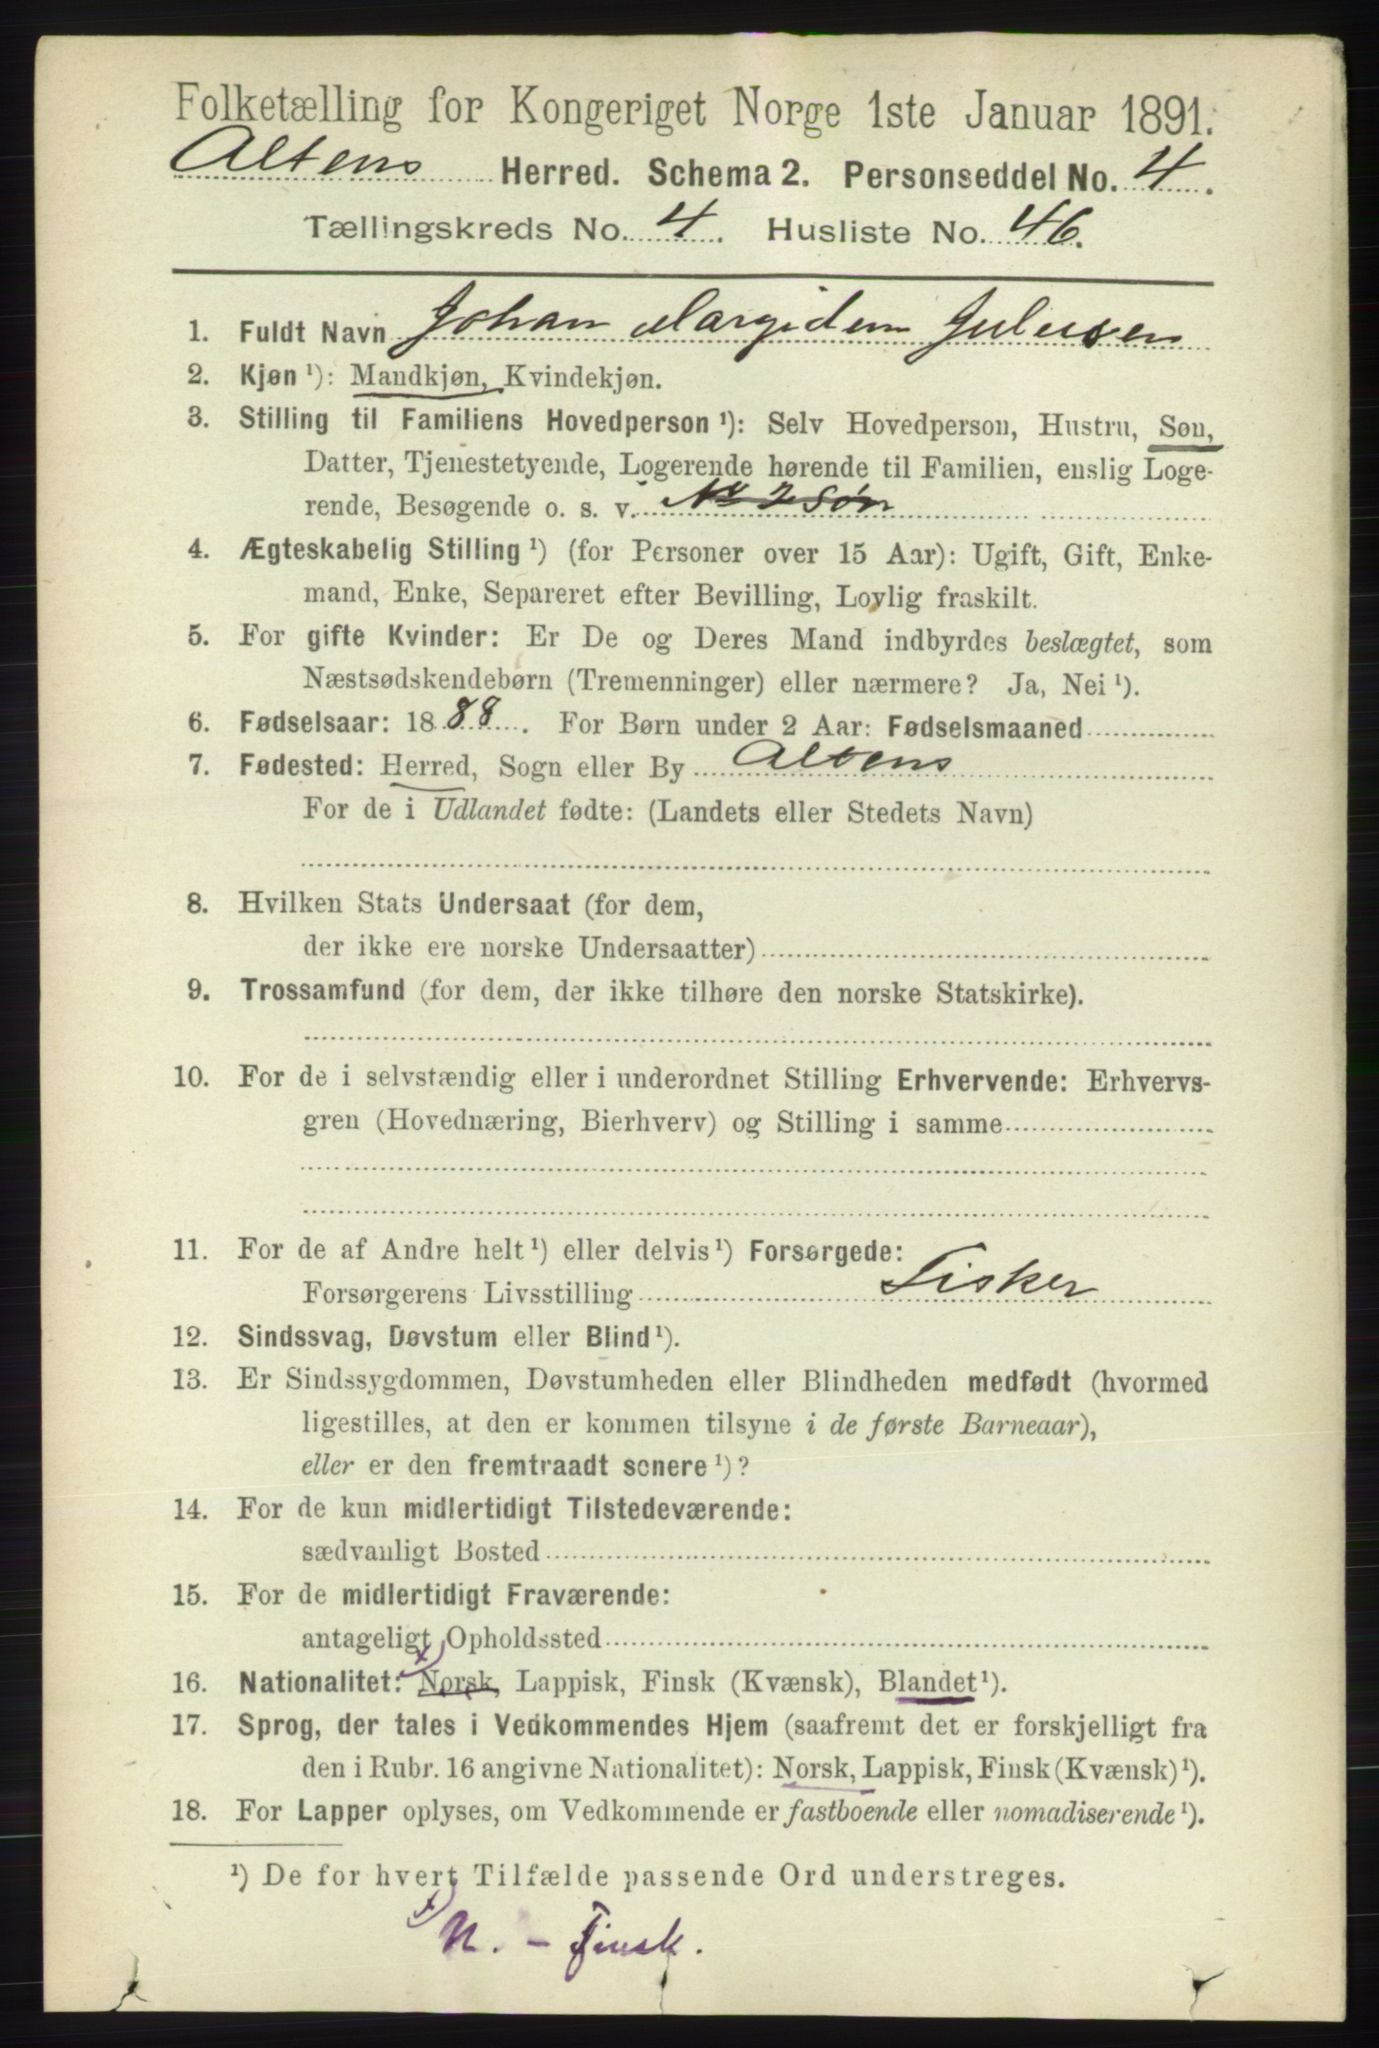 Folketælling for Kongeriget Norge 1ste Januar 1891.
Altens Herred. Schema 2. Personseddel No. 4.
Tællingskreds No. 4. Husliste No. 46.
1. Fuldt Navn Johan Margidem Julesen
2. Kjøn ¹): Mandkjøn, Kvindekjøn.
3. Stilling til Familiens Hovedperson ¹): Selv Hovedperson, Hustru, Søn,
Datter, Tjenestetyende, Logerende hørende til Familien, enslig Loge-
rende, Besøgende o. s. v. No 2 Søn
4. Ægteskabelig Stilling ¹) (for Personer over 15 Aar): Ugift, Gift, Enke-
mand, Enke, Separeret efter Bevilling, Lovlig fraskilt.
5. For gifte Kvinder: Er De og Deres Mand indbyrdes beslægtet, som
Næstsødskendebørn (Tremenninger) eller nærmere? Ja, Nei ¹).
6. Fødselsaar: 1888. For Børn under 2 Aar: Fødselsmaaned
7. Fødested: Herred, Sogn eller By Altens
For de i Udlandet fødte: (Landets eller Stedets Navn)
8. Hvilken Stats Undersaat (for dem,
der ikke ere norske Undersaatter)
9. Trossamfund (for dem, der ikke tilhøre den norske Statskirke).
10. For de i selvstændig eller i underordnet Stilling Erhvervende: Erhvervs-
gren (Hovednæring, Bierhverv) og Stilling i samme
11. For de af Andre helt ¹) eller delvis ¹) Forsørgede:
Forsørgerens Livsstilling Fisker
12. Sindssvag, Døvstum eller Blind ¹).
13. Er Sindssygdommen, Døvstumheden eller Blindheden medfødt (hvormed
ligestilles, at den er kommen tilsyne i de første Barneaar),
eller er den fremtraadt senere ¹)?
14. For de kun midlertidigt Tilstedeværende:
sædvanligt Bosted
15. For de midlertidigt Fraværende:
antageligt Opholdssted
x)
16. Nationalitet: Norsk, Lappisk, Finsk (Kvænsk), Blandet ¹).
17. Sprog, der tales i Vedkommendes Hjem (saafremt det er forskjelligt fra
den i Rubr. 16 angivne Nationalitet): Norsk, Lappisk, Finsk (Kvænsk) ¹).
18. For Lapper oplyses, om Vedkommende er fastboende eller nomadiserende ¹).
¹) De for hvert Tilfælde passende Ord understreges.
x) N. - Finsk.